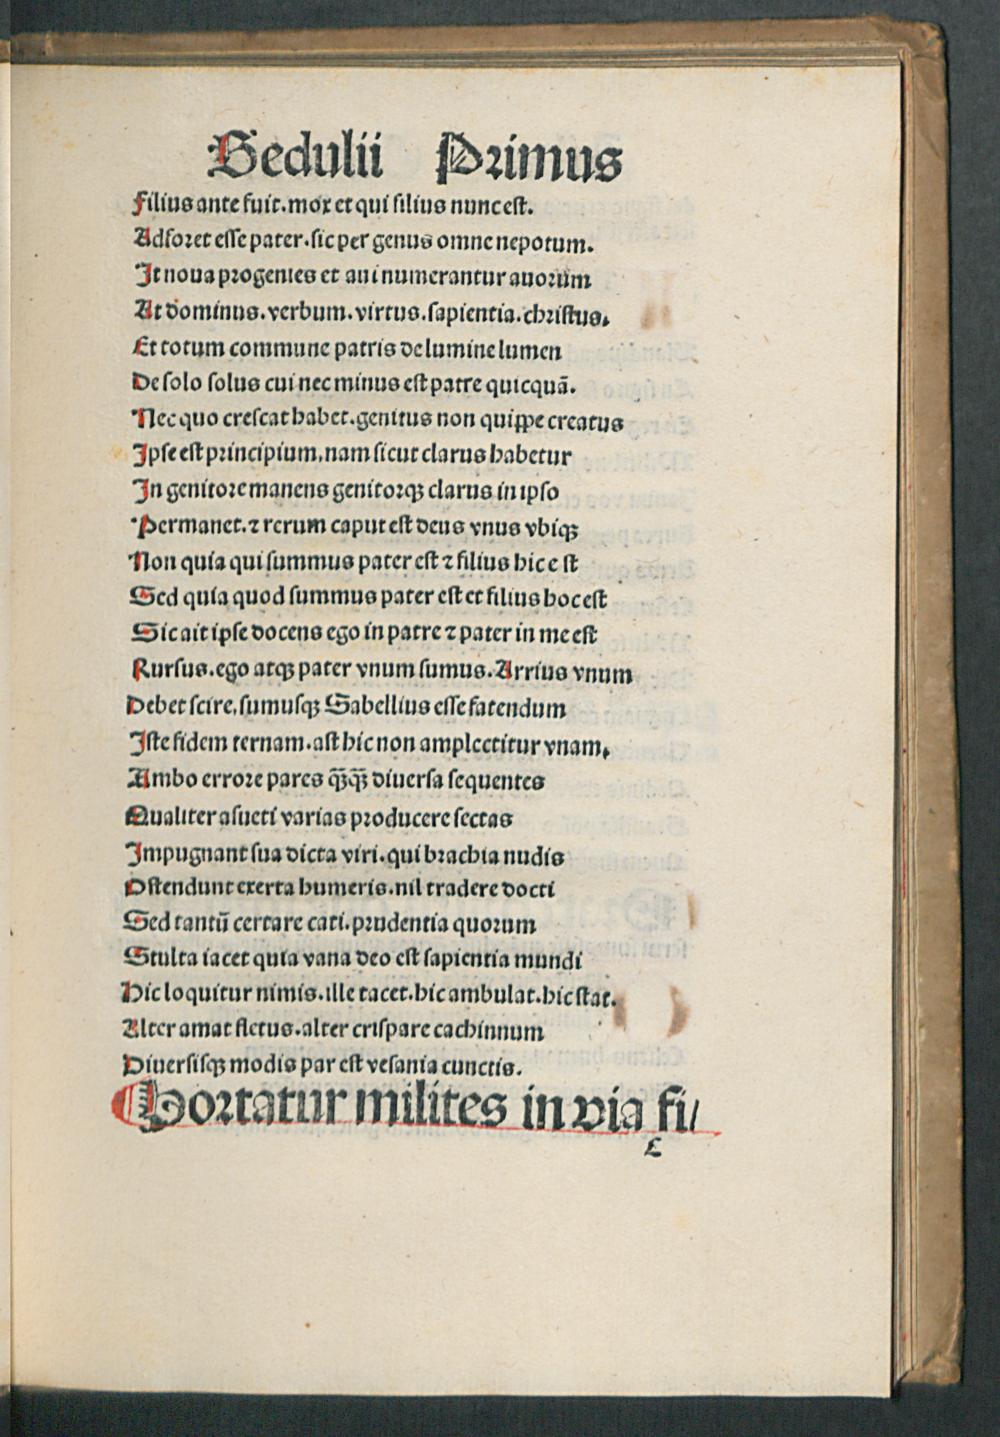 Sedulii Primus
Filius ante fuit. mox et qui filius nunc est.
Adforet esse pater. sic per genus omne nepotum.
It noua progenies et aui numerantur auorum
At dominus. verbum. virtus. sapientia. christus.
Et totum commune patris de lumine lumen
De solo solus cui nec minus est patre quicquā.
Nec quo crescat habet. genitus non quippe creatus
Ipse est principium. nam sicut clarus habetur
In genitore manens genitorqꝫ clarus in ipso
Permanet. ⁊ rerum caput est deus vnus vbiqꝫ
Non quia qui summus pater est ⁊ filius hic e st
Sed quia quod summus pater est et filius hoc est
Sic ait ipse docens ego in patre ⁊ pater in me est
Rursus. ego atqꝫ pater vnum sumus. Arrius vnum
Debet scire, sumusqꝫ Sabellius esse fatendum
Iste fidem ternam. ast hic non amplectitur vnam.
Ambo errore pares qꝫ̄qꝫ̄ diuersa sequentes
Qualiter asueti varias producere sectas
Impugnant sua dicta viri. qui brachia nudis
Ostendunt exerta humeris. nil tradere docti
Sed tantū certare cati. prudentia quorum
Stulta iacet quia vana deo est sapientia mundi
Hic loquitur nimis. ille tacet. hic ambulat. hic stat.
Alter amat fletus. alter crispare cachinnum
Diuersisqꝫ modis par est vesania cunctis.
Hortatur milites in via fi/